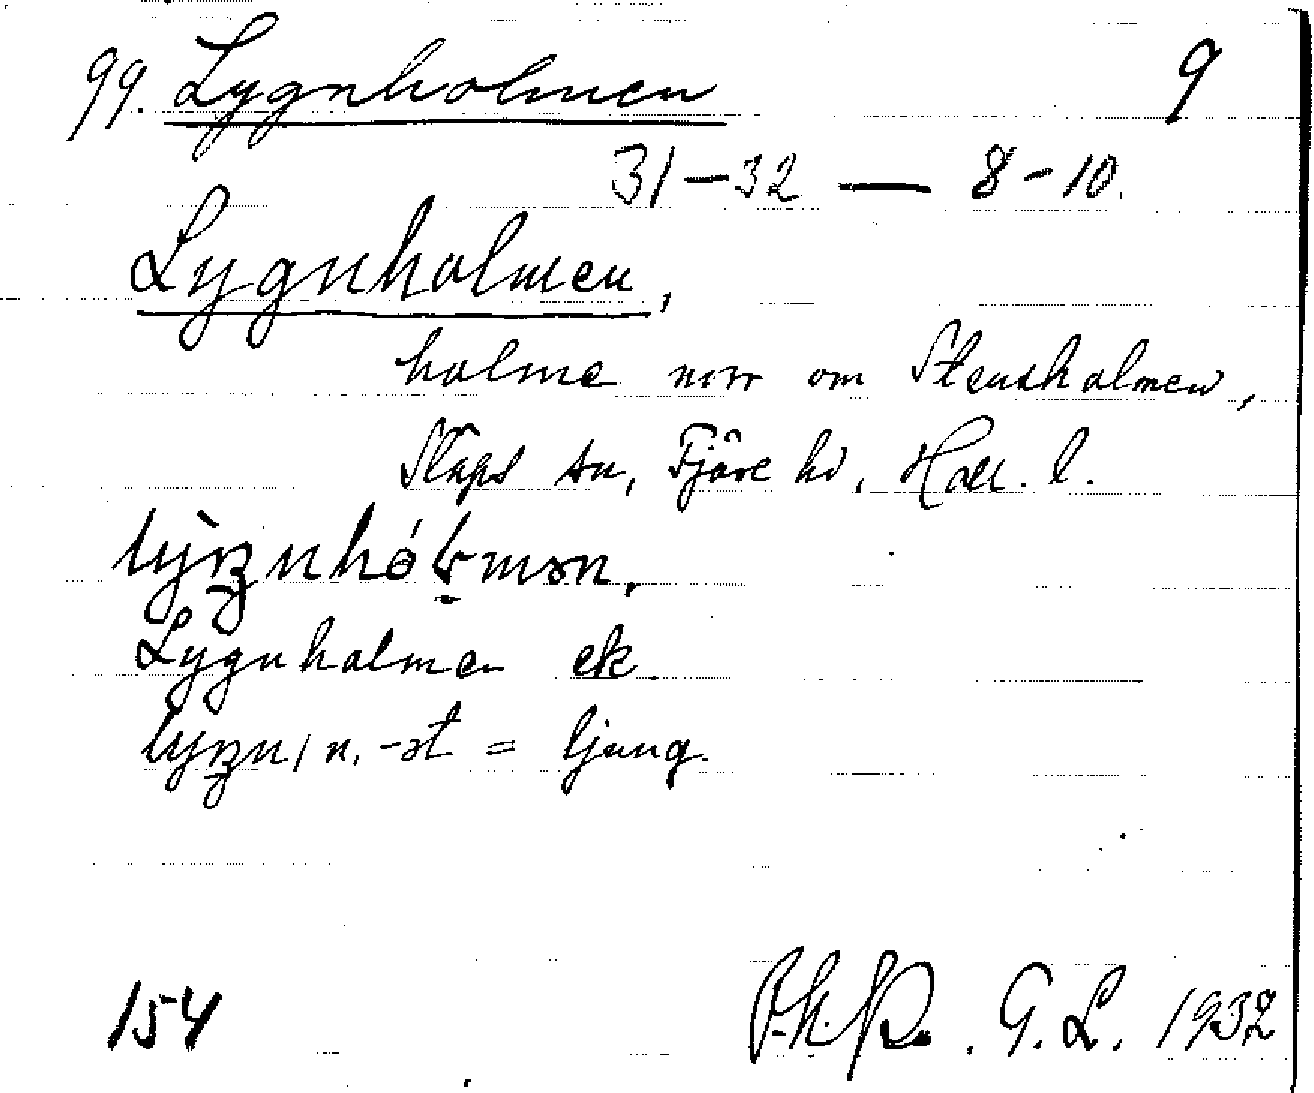 99. Lygnholmen 9
31–32 — 8–10.
Lygnholmen,
holme norr om Stensholmen,
Släps sn, Fjäre hd, Hall. l.
Lygnholmen ek.
n. -ət = ljung.
154 G. L. 1932